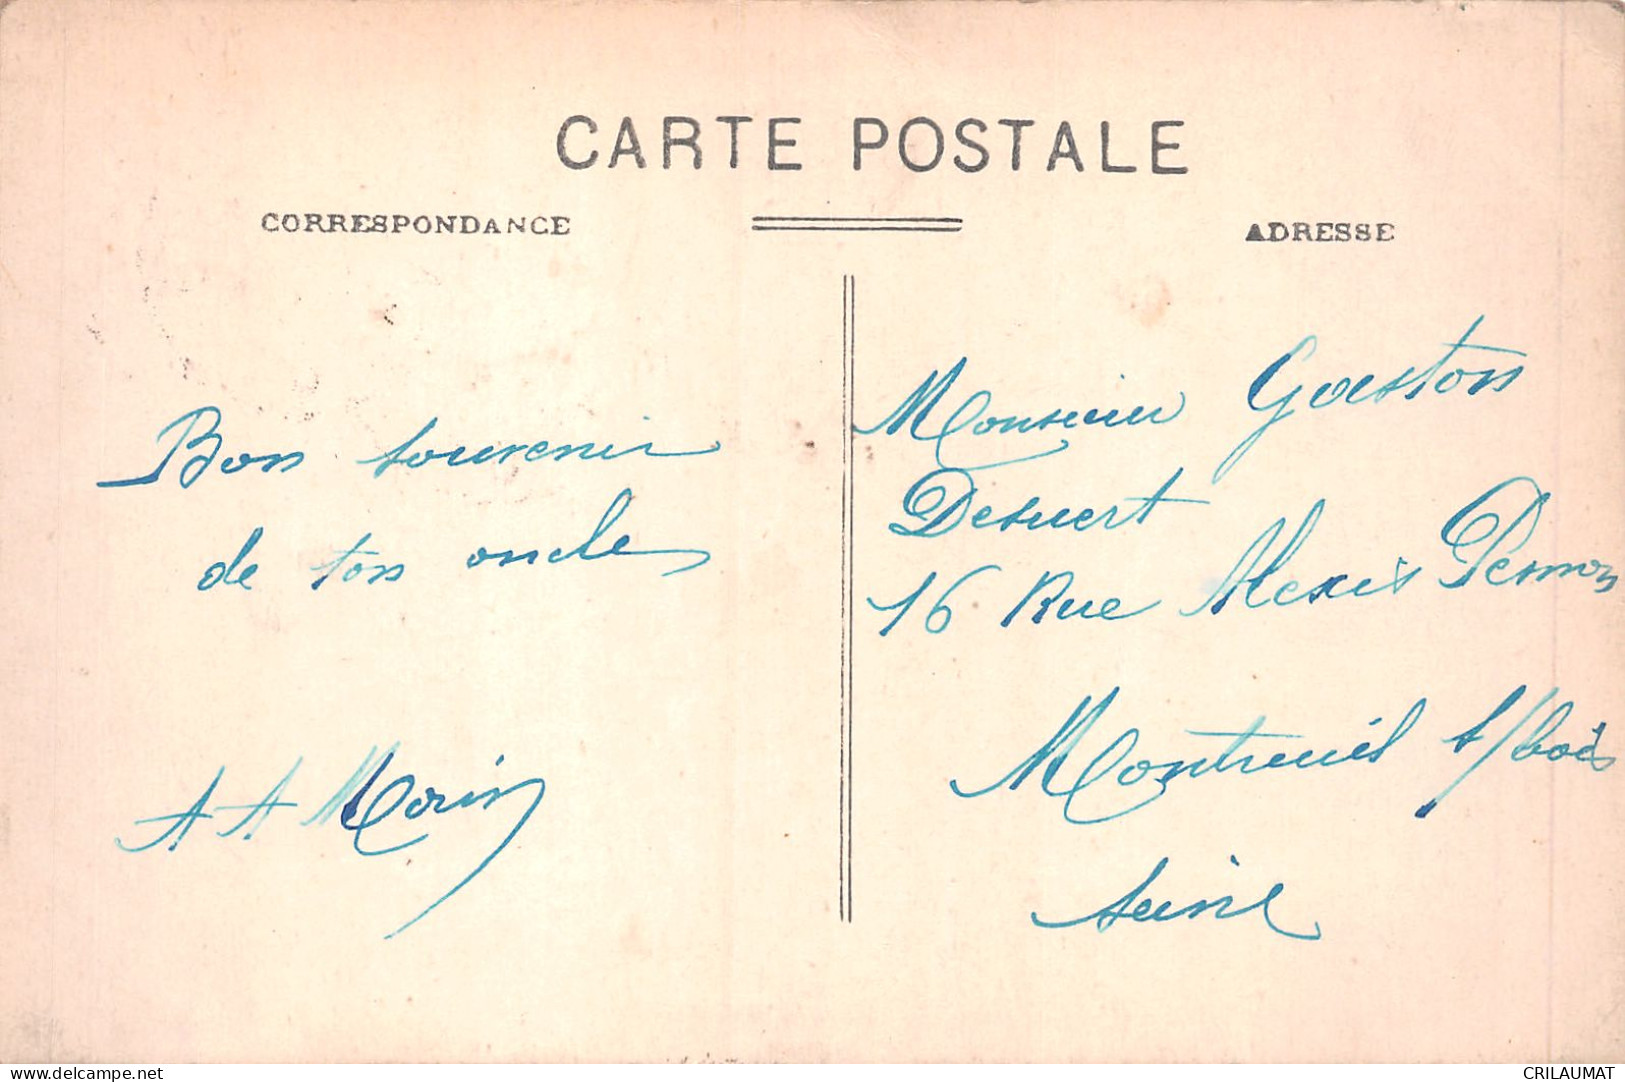 CARTE POSTALE
CORRESPONDANCE
ADRESSE
Bon souvenir
de ton oncle
A A Morin
Monsieur Gaston
Desuert
16 Rue Alexis Pesnon
Montreuil s/bois
Seine
www.delcampe.net
CRILAUMAT